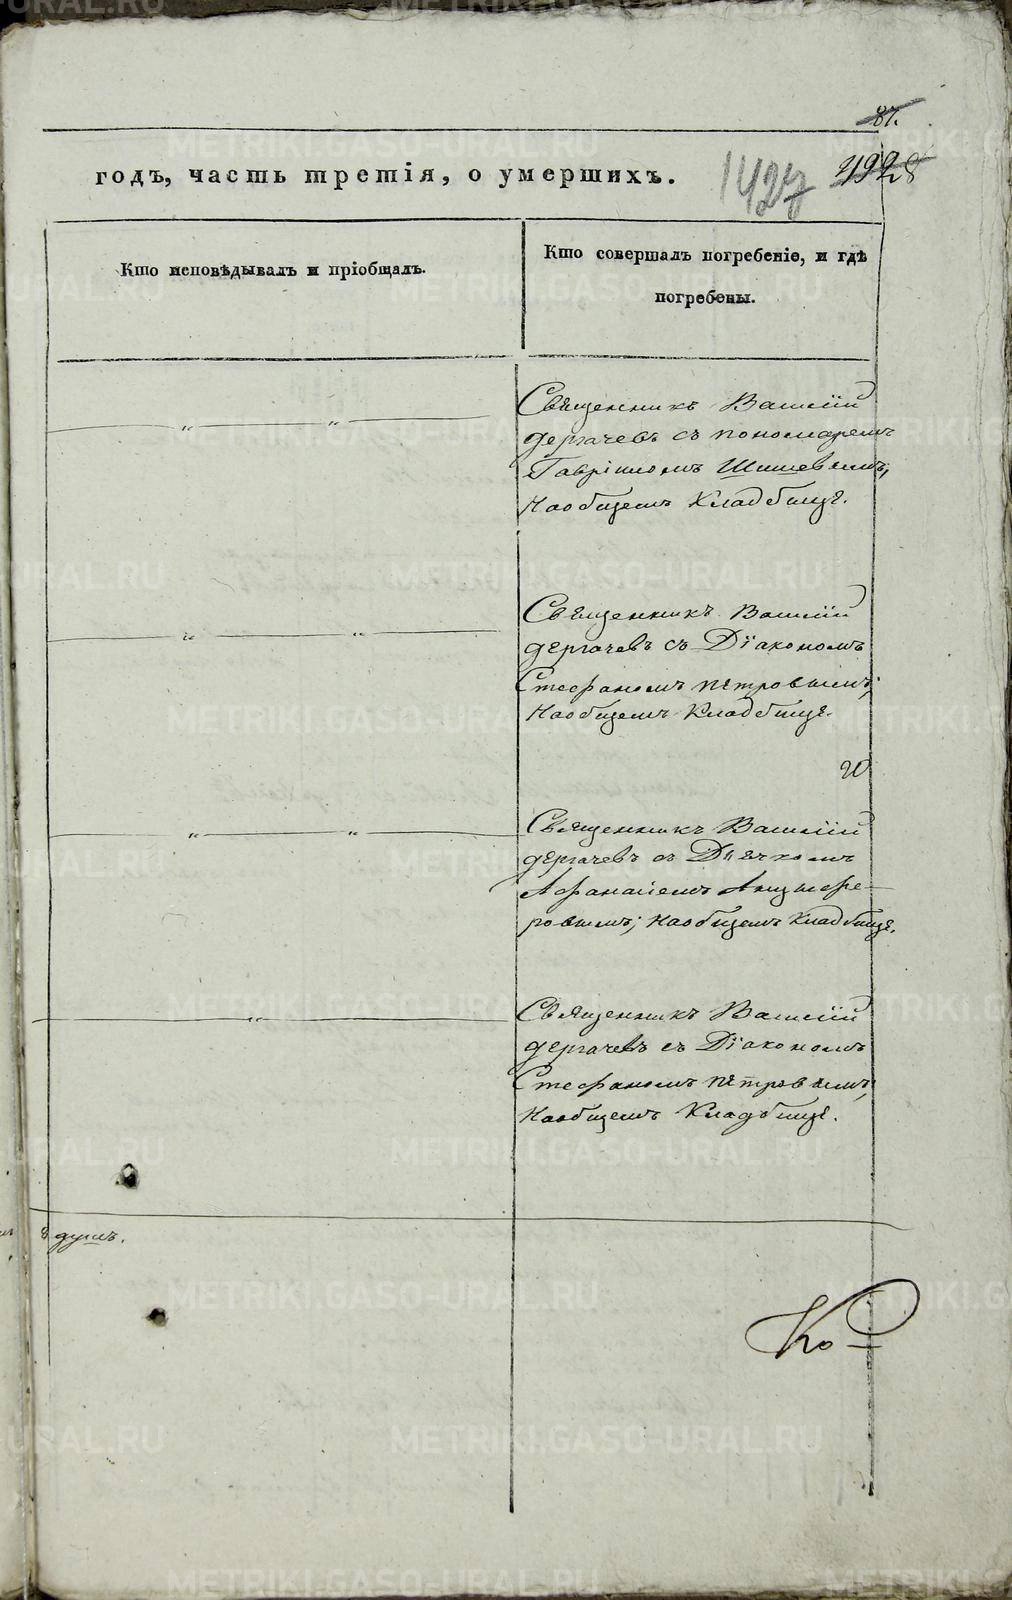 87.
годъ, часть третія, о умершихъ.
1427
Кто исповѣдывалъ и пріобщалъ.
Кто совершалъ погребеніе, и гдѣ
погребены.
Священникъ Василій
Дергачевъ съ пономаремъ
Гавріиломъ Шишевымъ;
На общемъ Кладбищѣ.
Священникъ Василій
Дергачевъ съ Діакономъ
Стефаномъ Петровымъ;
На общемъ Кладбищѣ.
Священникъ Василій
Дергачевъ съ Дьячкомъ
Афанасіемъ Анцыфе-
ровымъ; На общемъ Кладбищѣ.
Священникъ Василій
Дергачевъ съ Діакономъ
Стефаномъ Петровымъ;
На общемъ Кладбищѣ.
8 душъ.
METRIKI.GASO-URAL.RU